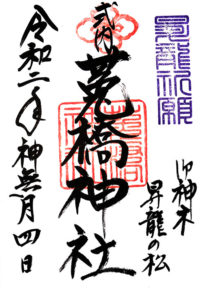 昇龍祈願
御神木
昇龍の松
式内
莵橋神社
令和二年神無月四日